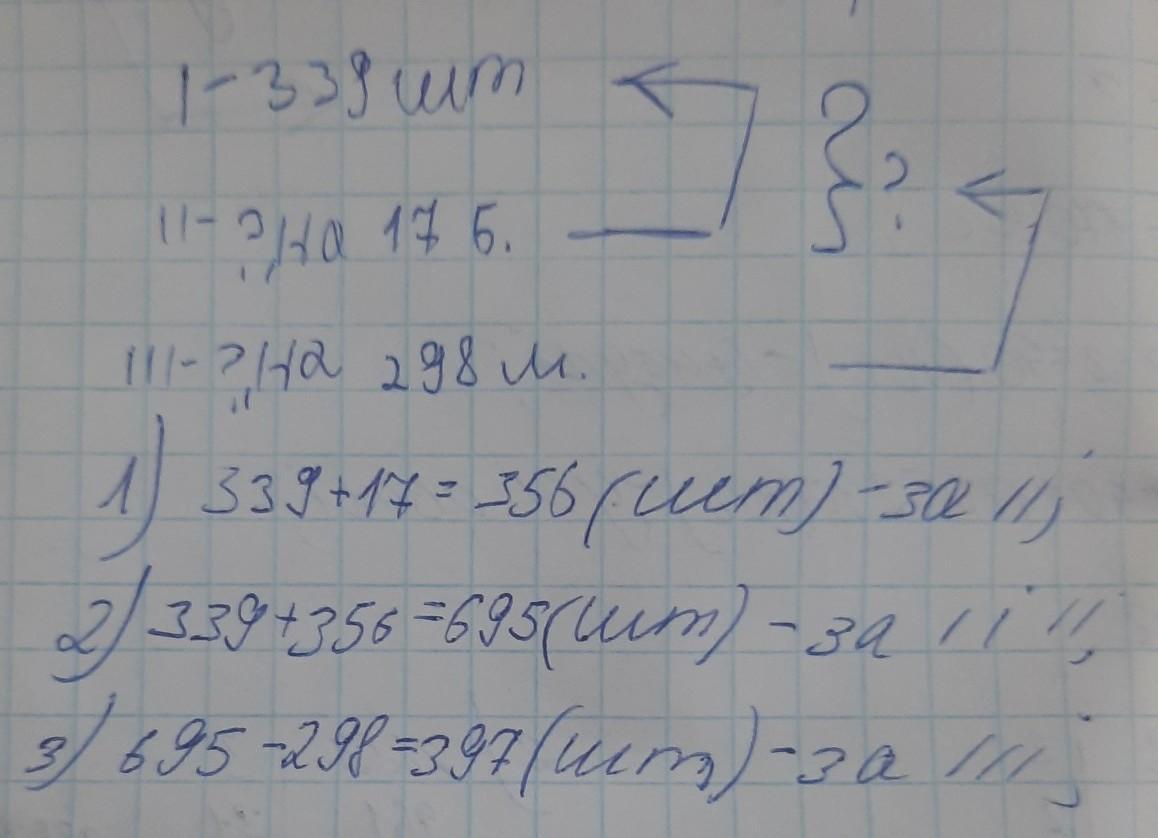 I - 339 шт
II - ?, на 17 б. } ?
III - ?, на 298 м.
1) 339+17=356(шт) - за II;
2) 339+356=695(шт) - за I і II;
3) 695-298=397(шт) - за III;